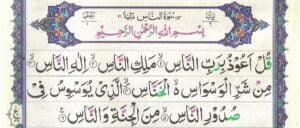 سُوْرَةُ النَّاسِ مَدَنِيَّةٌ
بِسْمِ اللّٰهِ الرَّحْمٰنِ الرَّحِيْمِ
قُلْ اَعُوْذُ بِرَبِّ النَّاسِ مَلِكِ النَّاسِ اِلٰهِ النَّاسِ
مِنْ شَرِّ الْوَسْوَاسِ الْخَنَّاسِ الَّذِىْ يُوَسْوِسُ فِىْ
صُدُوْرِ النَّاسِ مِنَ الْجِنَّةِ وَالنَّاسِ